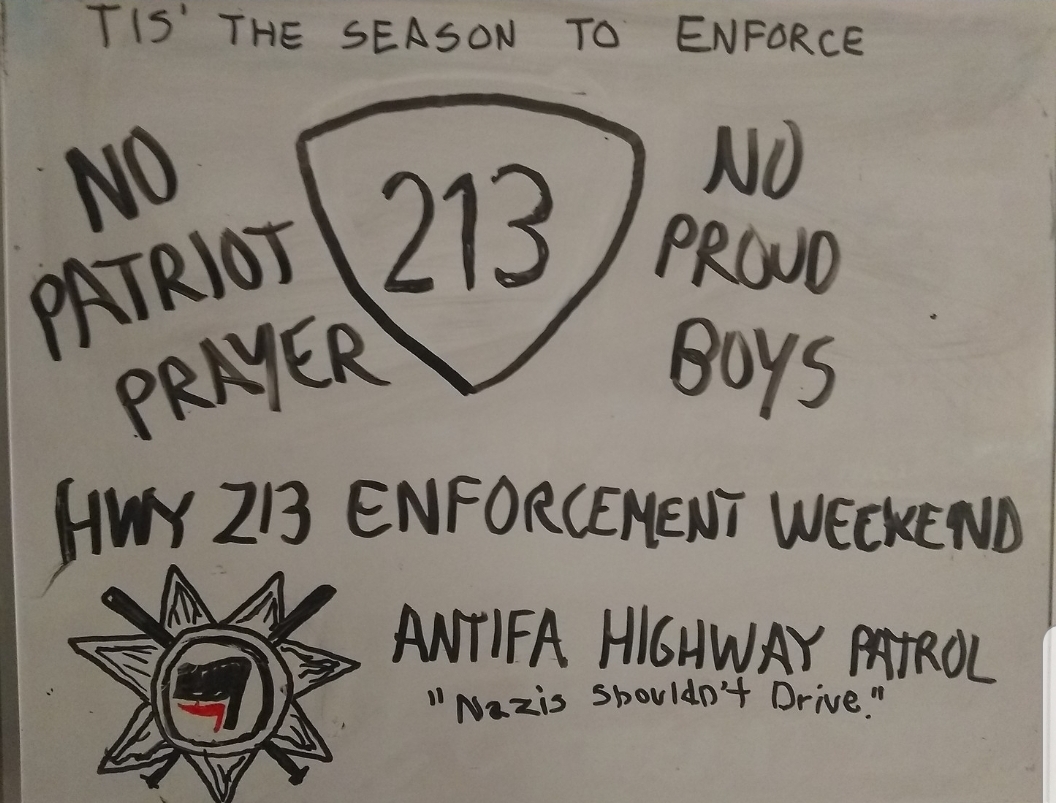 TIS' THE SEASON TO ENFORCE
NO
PATRIOT
PRAYER
213
NO
PROUD
BOYS
HWY 213 ENFORCEMENT WEEKEND
ANTIFA HIGHWAY PATROL
"Nazis Shouldn't Drive."